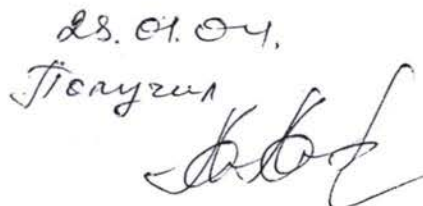 28.01.04.
Получил